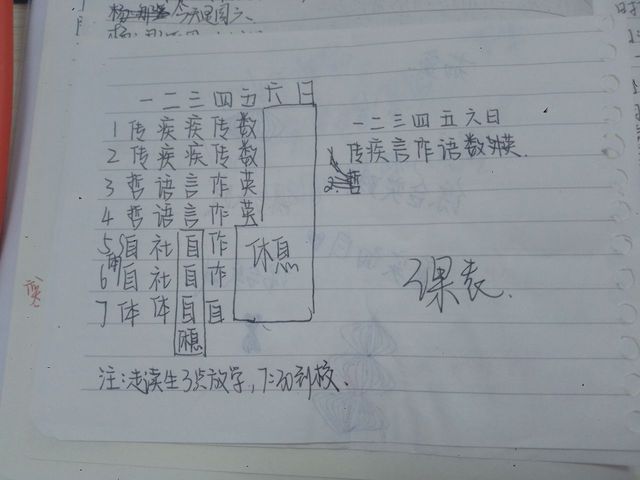 今天是周六、
一二三四五六日
1 传疾疾传数
2 传疾疾传数
3 哲语言作英
4 哲语言作英
5 自社自作
6 自社自作
休息
7 体体自自
休息
一二三四五六日
传疾言作语数英.
哲
课表.
注:走读生3点放学,7:30到校、